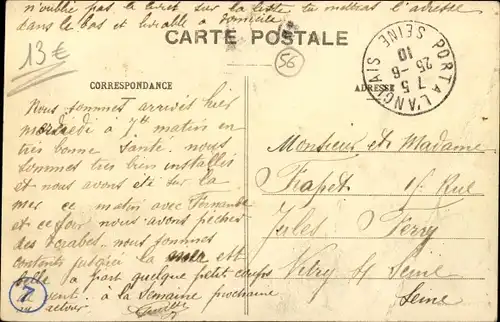 n'oublie pas le livret sur la liste tu mettras l'adresse
dans le bas et livrable a domicile
13€
CARTE POSTALE
56
PORT A L'ANGLAIS
SEINE
7 5
25 -6
10
CORRESPONDANCE
ADRESSE
Nous sommes arrivés hier
mercredi à 7h matin en
très bonne santé. nous
sommes très bien installés
et nous avons été sur la
mer ce matin avec Fernande
et ce soir nous avons pêchés
des crabes. nous sommes
contents jusqu'a la mer est
belle à part quelque petit coups
de vent. à la semaine prochaine
au revoir
Monsieur et Madame
Frapet 1 f Rue
Jules Ferry
Vitry s/ Seine
Seine
7